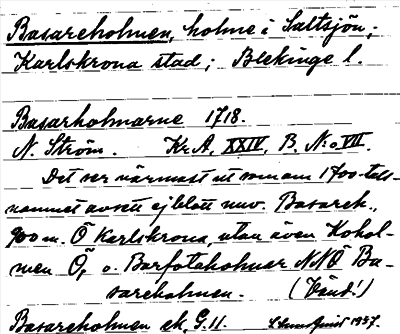 Basareholmen, holme i Saltsjön;
Karlskrona stad; Blekinge l.
Basarholmarne 1718.
N. Ström. Kr.A, XXIV, B, N:o VII.
Det ser närmast ut som om 1700-tals-
namnet avsett ej blott nuv. Basareh.,
900 m. Ö Karlskrona, utan även Kohol-
men Ö, o. Barfoteholmar NNÖ Ba-
sareholmen. (Vänd!)
Basareholmen ek. G.11. 1937.